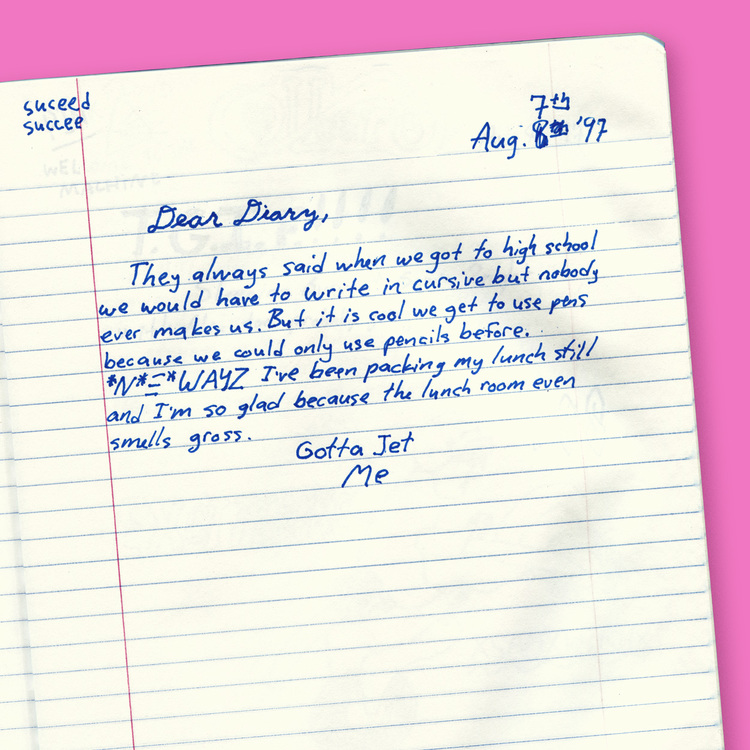 suceed
succee
7th
Aug. 8th '97
Dear Diary,
They always said when we got to high school
we would have to write in cursive but nobody
ever makes us. But it is cool we get to use pens
because we could only use pencils before.
*N*Ξ*WAYZ I've been packing my lunch still
and I'm so glad because the lunch room even
smells gross.
Gotta Jet
Me